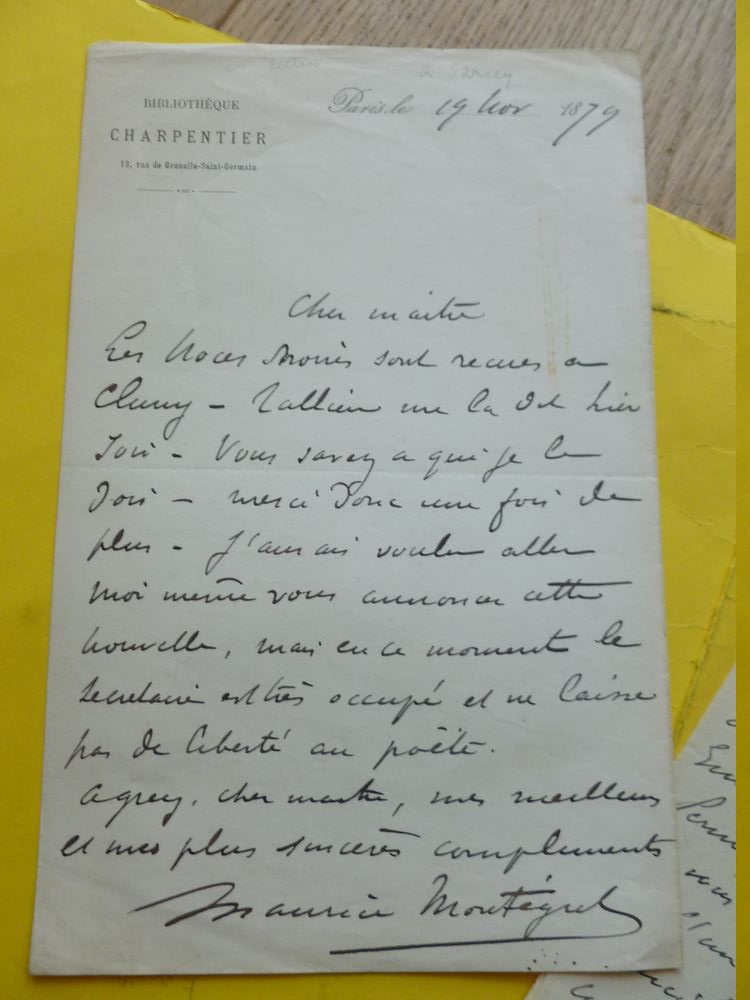 à Sarcey
BIBLIOTHÈQUE
CHARPENTIER
13, rue de Grenelle-Saint-Germain
Paris, le 19 Nov 1879
Cher maitre
Les Noces noires sont recues a
Cluny – Tallien me l'a dit hier
Soir – Vous savez a qui je le
Dois – merci Donc une fois de
plus – J'aurais voulu aller
moi même vous annoncer cette
nouvelle, mais en ce moment le
Secretaire est très occupé et ne laisse
pas de liberté au poëte.
Agreez, cher maitre, mes meilleurs
et mes plus sincères compliments
Maurice Montégut